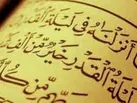 أَنزَلْنَٰهُ فِى لَيْلَةِ ٱلْقَدْرِ
لَيْلَةُ ٱلْقَدْرِ خَيْرٌ مِّنْ
رَبِّهِم مِّن كُلِّ